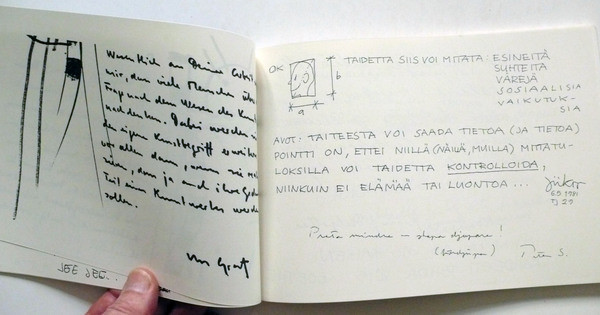 Wenn ich an Deine Arbeit
mir, dass viele Menschen über
Frage nach dem Wesen der Kunst
nachdenken. Dabei werden sie
den eigenen Kunstbegriff erweitern
vor allem dann, wenn sie
dass ja auch ihre
Teil eines Kunstwerkes werden
sollen.
JEE JEE...
OK
a
b
TAIDETTA SIIS VOI MITATA: ESINEITÄ
SUHTEITA
VÄREJÄ
SOSIAALISIA
VAIKUTUK-
SIA
AVOT: TAITEESTA VOI SAADA TIETOA (JA TIETOA)
POINTTI ON, ETTEI NIILLÄ (NÄILÄ, MUILLA) MITTATU-
LOKSILLA VOI TAIDETTA KONTROLLOIDA,
NIINKUIN EI ELÄMÄÄ TAI LUONTOA...
6.9.1981
Prata mindre – skapa djupare!
Peter S.